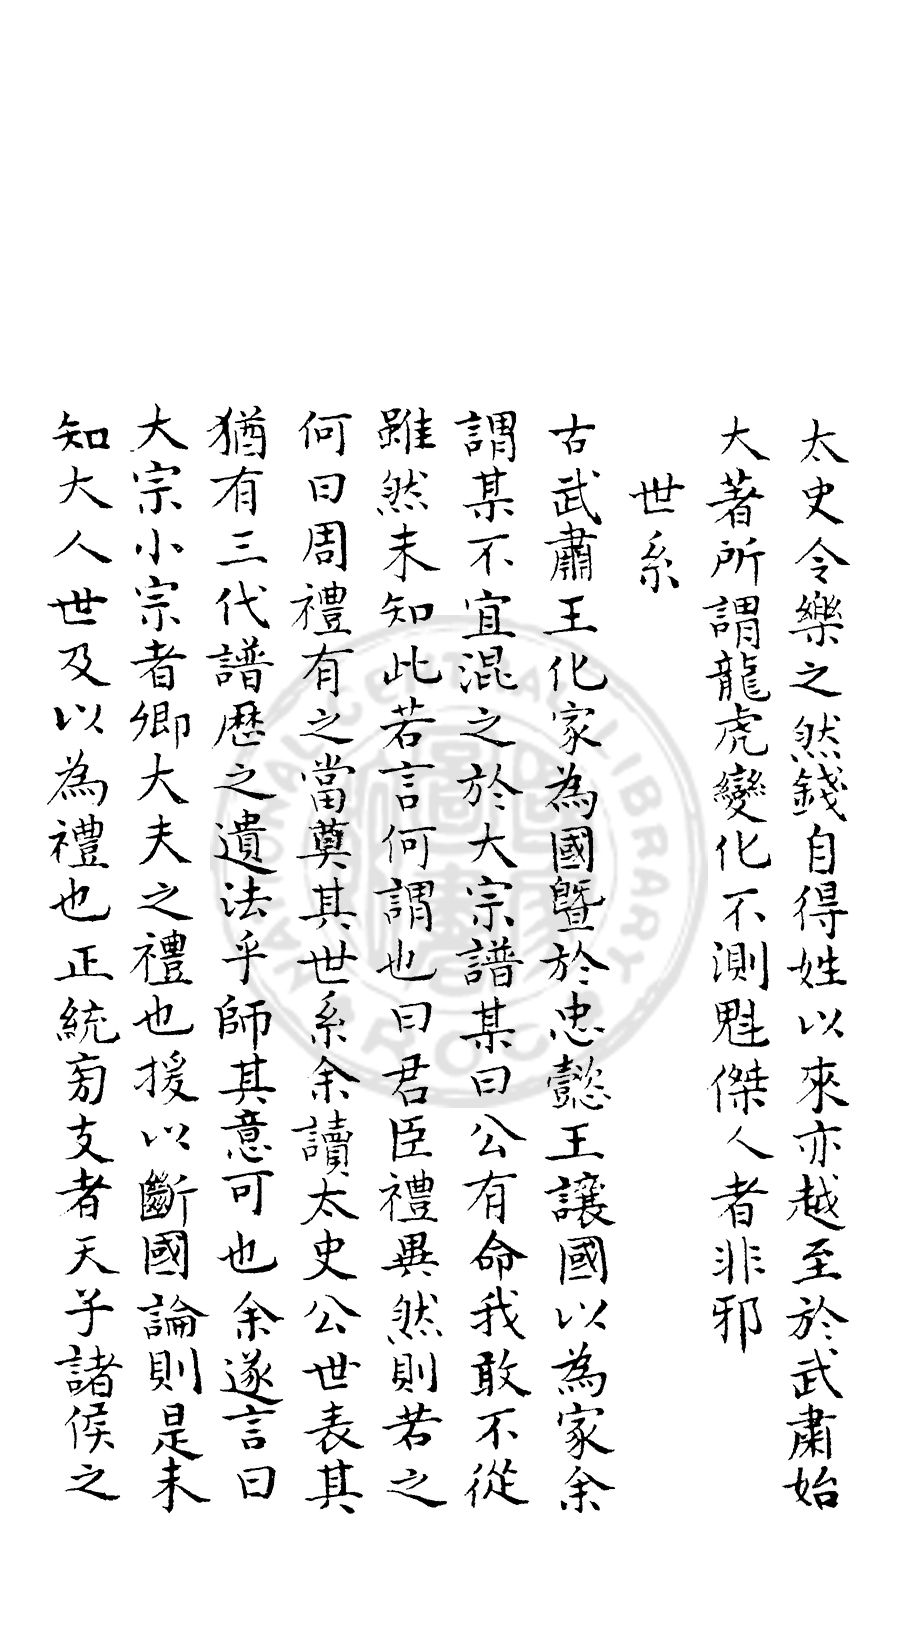 太史令樂之然錢自得姓以來亦越至於武肅始
大著所謂龍虎變化不測魁傑人者非邪
世系
古武肅王化家為國暨於忠懿王讓國以為家余
謂某不宜混之於大宗譜某曰公有命我敢不從
雖然未知此若言何謂也曰君臣禮異然則若之
何曰周禮有之當奠其世系余讀太史公世表其
猶有三代譜歷之遺法乎師其意可也余遂言曰
大宗小宗者卿大夫之禮也援以斷國論則是未
知大人世及以為禮也正統匇支者天子諸侯之